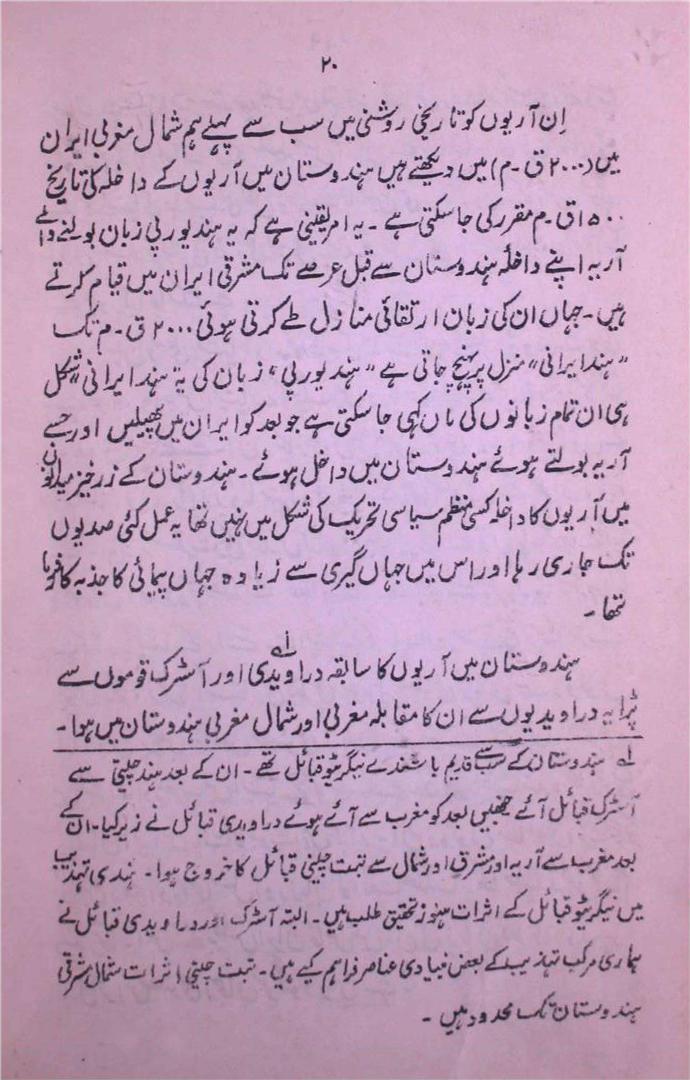 ۲۰
اِن آریوں کو تاریخی روشنی میں سب سے پہلے ہم شمال مغربی ایران
میں (۲۰۰۰ ق۔م) میں دیکھتے ہیں ہندوستان میں آریوں کے داخلہ کی تاریخ
۱۵۰۰ ق۔م مقرر کی جا سکتی ہے۔ یہ امر یقینی ہے کہ یہ ہند یورپی زبان بولنے والے
آریہ اپنے داخلۂ ہندوستان سے قبل عرصے تک مشرقی ایران میں قیام کرتے
ہیں۔ جہاں ان کی زبان ارتقائی منازل طے کرتی ہوئی ۲۰۰۰ ق۔م تک
"ہند ایرانی" منزل پر پہنچ جاتی ہے "ہند یورپی" زبان کی یہ "ہند ایرانی" شکل
ہی ان تمام زبانوں کی ماں کہی جا سکتی ہے جو بعد کو ایران میں پھیلیں اور جسے
آریہ بولتے ہوئے ہندوستان میں داخل ہوئے۔ ہندوستان کے زرخیز میدانوں
میں آریوں کا داخلہ کسی منظم سیاسی تحریک کی شکل میں نہیں تھا یہ عمل کئی صدیوں
تک جاری رہا اور اس میں جہاں گیری سے زیادہ جہاں پیمائی کا جذبہ کافرما
تھا۔
ہندوستان میں آریوں کا سابقہ دراویدی لے اور آسٹرک قوموں سے
پڑا یہ دراویدیوں سے ان کا مقابلہ مغربی اور شمال مغربی ہندوستان میں ہوا۔
لے ہندوستان کے سب سے قدیم باشندے نیگریٹو قبائل تھے۔ ان کے بعد ہند چینی سے
آسٹرک قبائل آئے جنھیں بعد کو مغرب سے آئے ہوئے دراویدی قبائل نے زیر کیا۔ ان کے
بعد مغرب سے آریہ اور مشرق اور شمال سے تبت چینی قبائل کا خروج ہوا۔ ہندی تہذیب
میں نیگریٹو قبائل کے اثرات ہنوز تحقیق طلب ہیں۔ البتہ آسٹرک اور دراویدی قبائل نے
ہماری مرکب تہذیب کے بعض بنیادی عناصر فراہم کیے ہیں۔ تبت چینی اثرات شمال مشرقی
ہندوستان تک محدود ہیں۔